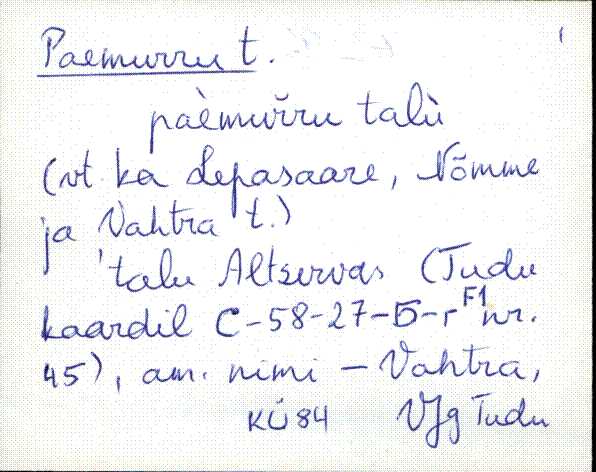 Paemurru t. 1
paèmuŕru talù
(vt ka Lepasaare, Nõmme
ja Vahtra t.)
talu Altservas (Tudu
kaardil C-58-27-Б-г F1 nr.
45), am. nimi – Vahtra,
KÜ84 VJg Tudu